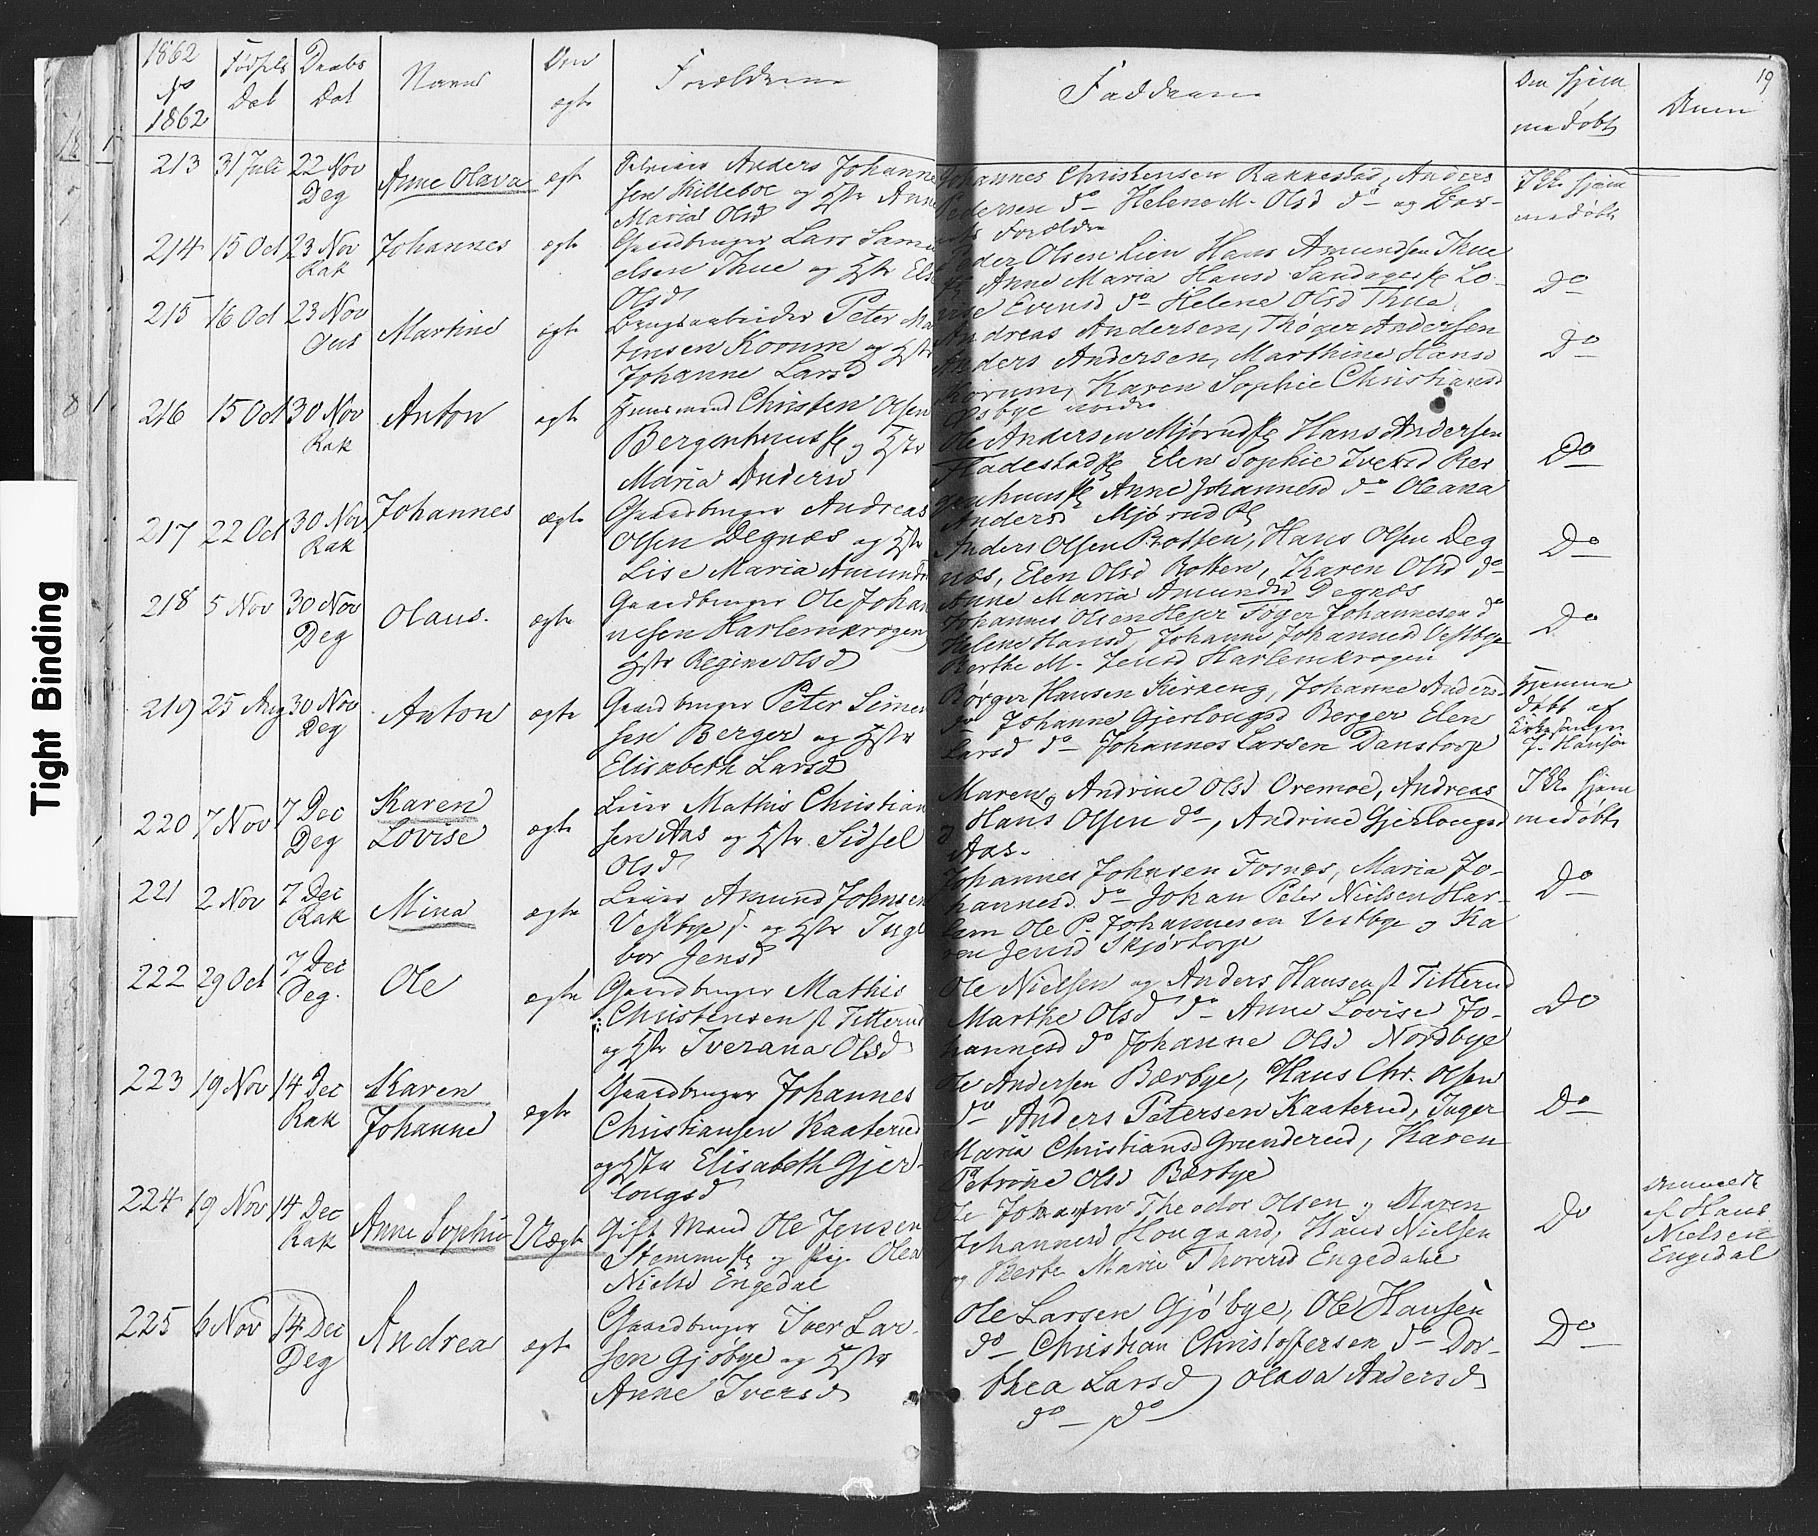 1862
No
1862
Fødsels
Dat
Daabs
Dat
Navne
Om
ægte
Forældrene
Fadderne
Om hjem
medøbt
Anm
19
Tight Binding
213 31 Juli 22 Nov Deg Anne Olava ægt
Anders Johanne
sen Killeboe og Hstr Anne
Maria Olsd
Johannes Christensen Rakkestad, Anders
Pedersen do Helene M. Olsd do og Bar-
nets Forældre
Ikke hjem
medøbt
214 15 Oct 23 Nov Rak Johannes ægte
Gaardbruger Lars Samu
elsen Thue og Hstr Else
Olsd
Peder Olsen Lien Hans Amundsen Thue
Anne Maria Hansd Sandager Lo-
vise Evensd do Helene Olsd Thue
Do
215 16 Oct 23 Nov Martine ægte
Brugsarbeider Peter Ma
tinsen Korum og Hstr
Johanne Larsd
Andreas Andersen, Thøger Andersen
Anders Andersen, Marthine Hansd
Korum, Karen Sophie Christiansd
Do
216 15 Oct 30 Nov Rak Anton ægte
Huusmand Christen Olsen
Bergenhuus og Hstr
Maria Andersd
Ole Andersen Mjørud Hans Andersen
Fladestad Elen Sophie Iversd Ber
genhuus Anne Johannesd do Oleana
Andersd Mjørud
Do
217 22 Oct 30 Nov Rak Johannes ægte
Gaardbruger Andreas
Olsen Degnæs og Hstr
Lise Maria Amundsd
Anders Olsen Botten, Hans Olsen Deg
næs, Elen Olsd Botten, Karen Olsd do
Anne Maria Amundsd Degnæs
Do
218 5 Nov 30 Nov Deg Olaus. ægte
Gaardbruger Ole Johan
nesen Harlemkrogen
Hstr Regine Olsd
Johannes Olsen Føger Johannesen do
Helene Hansd Johanne Johannesd Vestbye
Berthe M. Jensd Harlemkrogen
Do
219 25 Aug 30 Nov Deg Anton ægte
Gaardbruger Peter Simen
sen Berger og Hstr
Elisabeth Larsd
Børger Hansen Kirkeng, Johanne Anders-
do Johanne Gjerlougsd Berger Elen
Larsd do Johannes Larsen Danstorp
Hjemme
døbt af
Kirkesanger
J. Hansen
220 7 Nov 7 Dec Deg Karen Lovise ægte
Leier Mathis Christian
sen Aas og Hstr Sidsel
Olsd
Maren og Andrine Olsd Oremoe, Andreas
og Hans Olsen do, Andrine Gjerlougsd
Aas.
Ikke hjem
medøbt
221 2 Nov 7 Dec Rak Mina ægte
Leier Amund Johnsen
Vestbye og Hstr Inge
bor Jensd
Johannes Johnsen Fosnæs, Maria Jo-
hannesd do Johan Peter Nielsen Har-
lem Ole P. Johannesen Vestbye og Ka
ren Jensd Skjørtorp
Do
222 29 Oct 7 Dec Deg. Ole ægte
Gaardbruger Mathis
Christensen Titterud
og Hstr Iverana Olsd
Ole Nielsen og Anders Hansen Titterud
Marthe Olsd do Anne Lovise Jo-
hannesd do Johanne Olsd Nordbye
Do
223 19 Nov 14 Dec Rak Karen Johanne ægte
Gaardbruger Johannes
Christiansen Kaaterud
og Hstr Elisabeth Gjer-
lougsd
Ole Andersen Bærbye, Hans Chr. Olsen
do Anders Petersen Kaaterud, Inger
Maria Christiansd Grunderud, Karen
Petrine Olsd Bærbye
Do
224 19 Nov 14 Dec Rak Anne Sophie Uægte
Gift Mand Ole Jensen
Stemme og Pig. Olea
Nielsd Engedal
Theodor Olsen og Maren
Johannesd Hougaard, Hans Nielsen
og Berte Marie Thoresd Engedal
Do
Anmeldt
af Hans
Nielsen
Engedal
225 6 Nov 14 Dec Deg Andrea ægte
Gaardbruger Iver Lar-
sen Gjøbye og Hstr
Anne Iversd
Ole Larsen Gjøbye, Ole Hansen
do Christian Christoffersen do Dor-
thea Larsd Olava Andersd
do do
Do